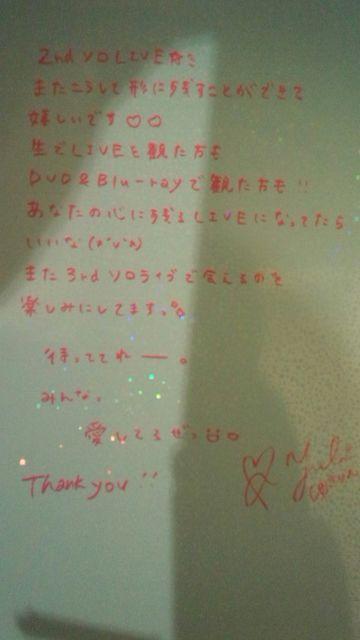 2nd ソロLIVEを
またこうして形に残すことができて
嬉しいです♡♡
生でLIVEを観た方も
DVD&Blu-rayで観た方も!!
あなたの心に残るLIVEになってたら
いいな
また3rdソロライブで会えるのを
楽しみにしてますっ
待っててねー。
みんな。
愛してるぜっ
Thank you!!